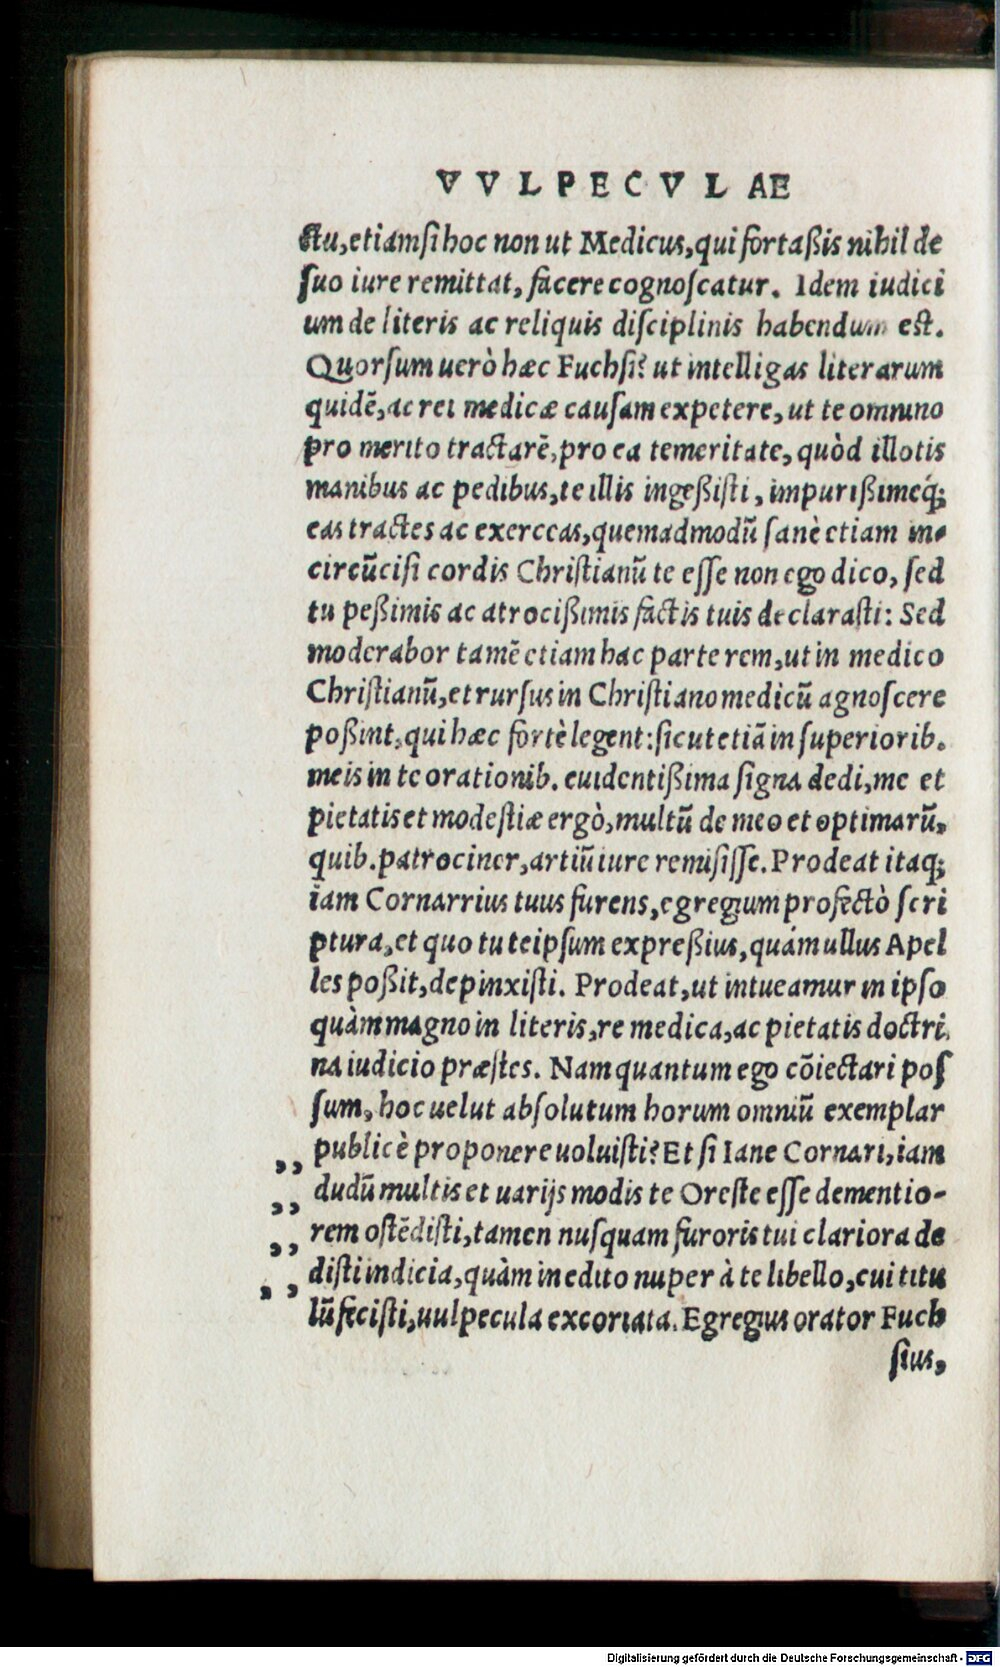 VVLPECVLAE
ctu, etiamſi hoc non ut Medicus, qui fortaßis nihil de
ſuo iure remittat, facere cognoſcatur. Idem iudici
um de literis ac reliquis diſciplinis habendum est.
Quorſum uerò hæc Fuchſi? ut intelligas literarum
quidē, ac rei medicæ cauſam expetere, ut te omnino
pro merito tractarē, pro ea temeritate, quòd illotis
manibus ac pedibus, te illis ingeßiſti, impurißimeq́;
eas tractes ac exerceas, quemadmodū ſanè etiam in-
circūciſi cordis Chriſtianū te eſſe non ego dico, ſed
tu peßimis ac atrocißimis factis tuis declaraſti: Sed
moderabor tamē etiam hac parte rem, ut in medico
Chriſtianū, et rurſus in Chriſtiano medicū agnoſcere
poßint, qui hæc fortè legent: ſicut etiā in ſuperiorib.
meis in te orationib. euidentißima ſigna dedi, me et
pietatis et modeſtiæ ergò, multū de meo et optimarū,
quib. patrociner, artiū iure remiſiſſe. Prodeat itaq;
iam Cornarrius tuus furens, egregium profectò ſcri
ptura, et quo tu teipſum expreßius, quàm ullus Apel
les poßit, depinxiſti. Prodeat, ut intueamur in ipſo
quàm magno in literis, re medica, ac pietatis doctri
na iudicio præſtes. Nam quantum ego cōiectari poſ
ſum, hoc uelut abſolutum horum omniū exemplar
publicè proponere uoluiſti? Et ſi Iane Cornari, iam
,, dudū multis et uarijs modis te Oreſte eſſe dementio-
,, rem oſtēdiſti, tamen nuſquam furoris tui clariora de
,, diſti indicia, quàm in edito nuper à te libello, cui titu
,, lū feciſti, uulpecula excoriata. Egregius orator Fuch
ſius,
Digitalisierung gefördert durch die Deutsche Forschungsgemeinschaft - DFG